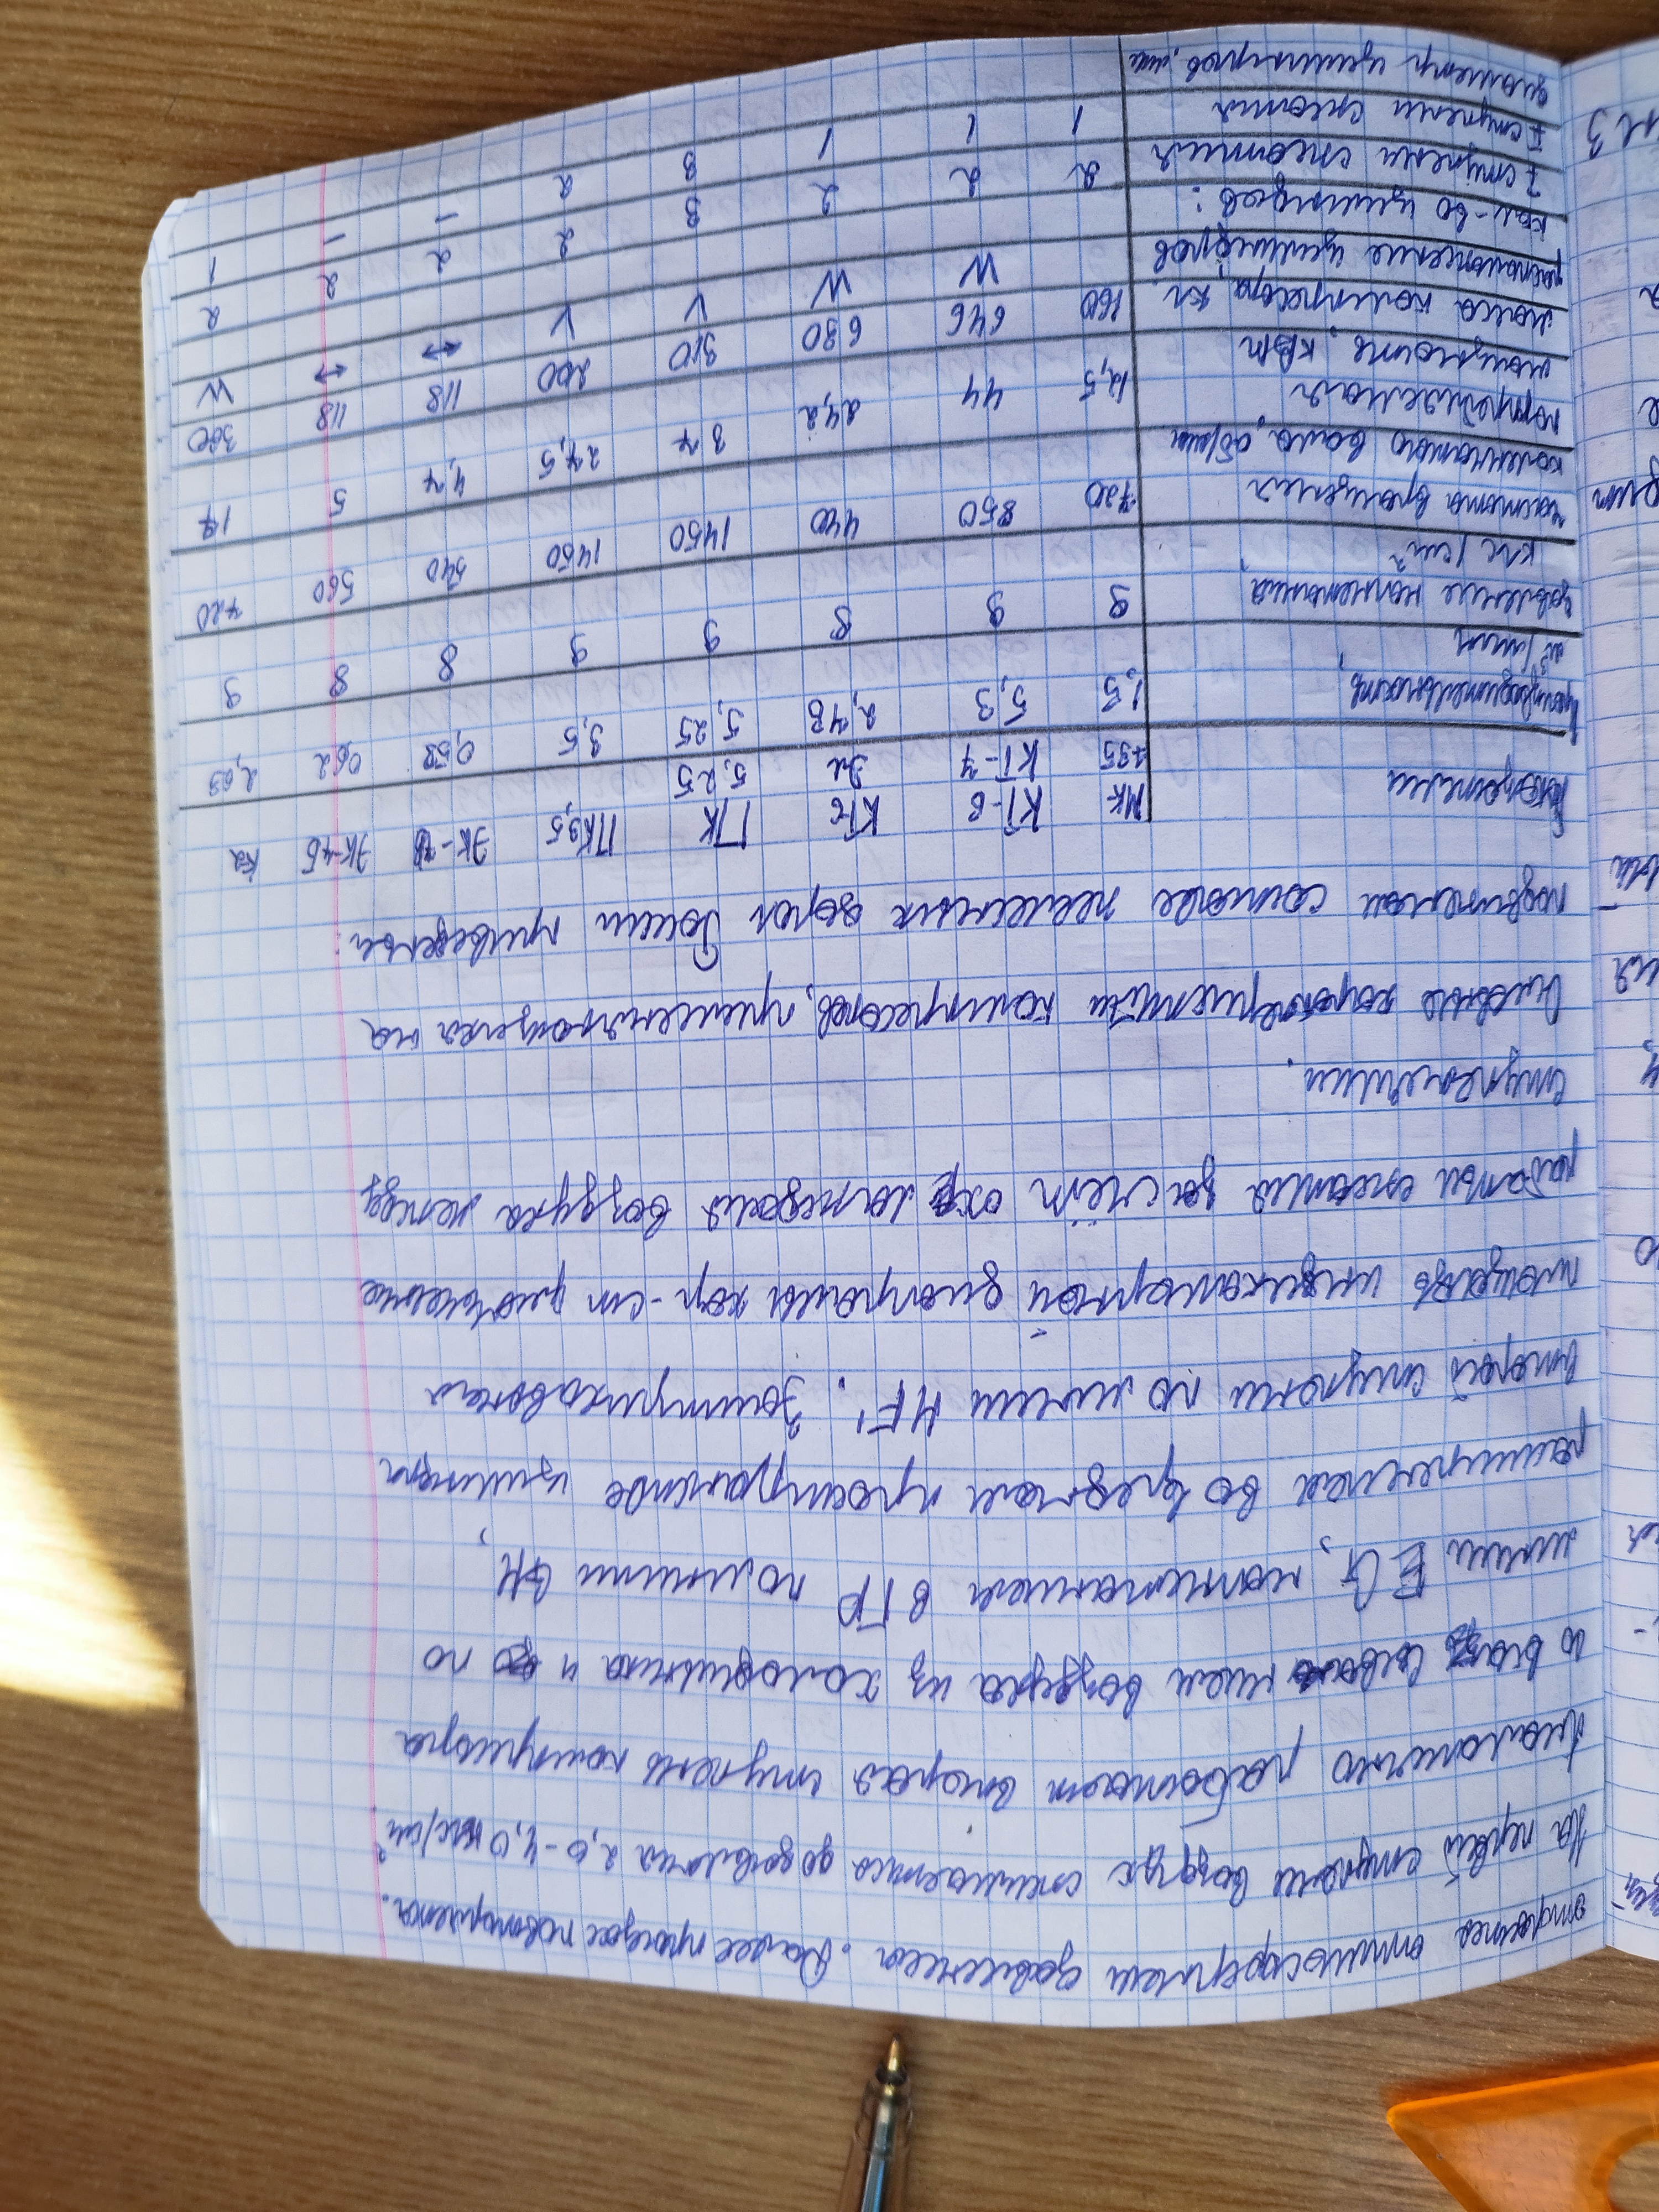 открыта атмосферным давлением. Далее процесс повторяется.
На первой ступени воздух сжимается до давления 2,0-4,0 кгс/см².
Аналогично работает вторая ступень компрессора
воздуха из холодильника и по
линии EG, нагнетание в ГР по линии GH,
расширение во вредном пространстве цилиндра
второй ступени по линии HF'. Заштрихованная
площадь индикаторной диаграммы хар-ет уменьшение
работы сжатия за счёт охлаждения воздуха между
ступенями.
Основные характеристики компрессоров, применяющихся на
подвижном составе железных дорог Займ приведены:
Показатели МК 135 КТ-6 КТ-7 КТ6 Эл ПК 5,25 ПК3,5 ЭК-7В ЭК-4Б К2
Производительность, м³/мин 1,5 5,3 2,75 5,25 3,5 0,58 0,62 2,63
давление нагнетания, кгс/см² 9 9 8 9 9 8 8 9
частота вращения коленчатого вала, об/мин 720 850 440 1450 1450 540 560 720
потребляемая мощность, кВт 12,5 44 24,2 37 27,5 4,7 5 17
масса компрессора, кг 160 646 630 310 200 118 118 360
расположение цилиндров W W V V ↔ ↔ W
кол-во цилиндров:
I ступени сжатия 2 2 2 3 2 2 2 2
II ступени сжатия 1 1 1 3 2 - - 1
диаметр цилиндров, мм